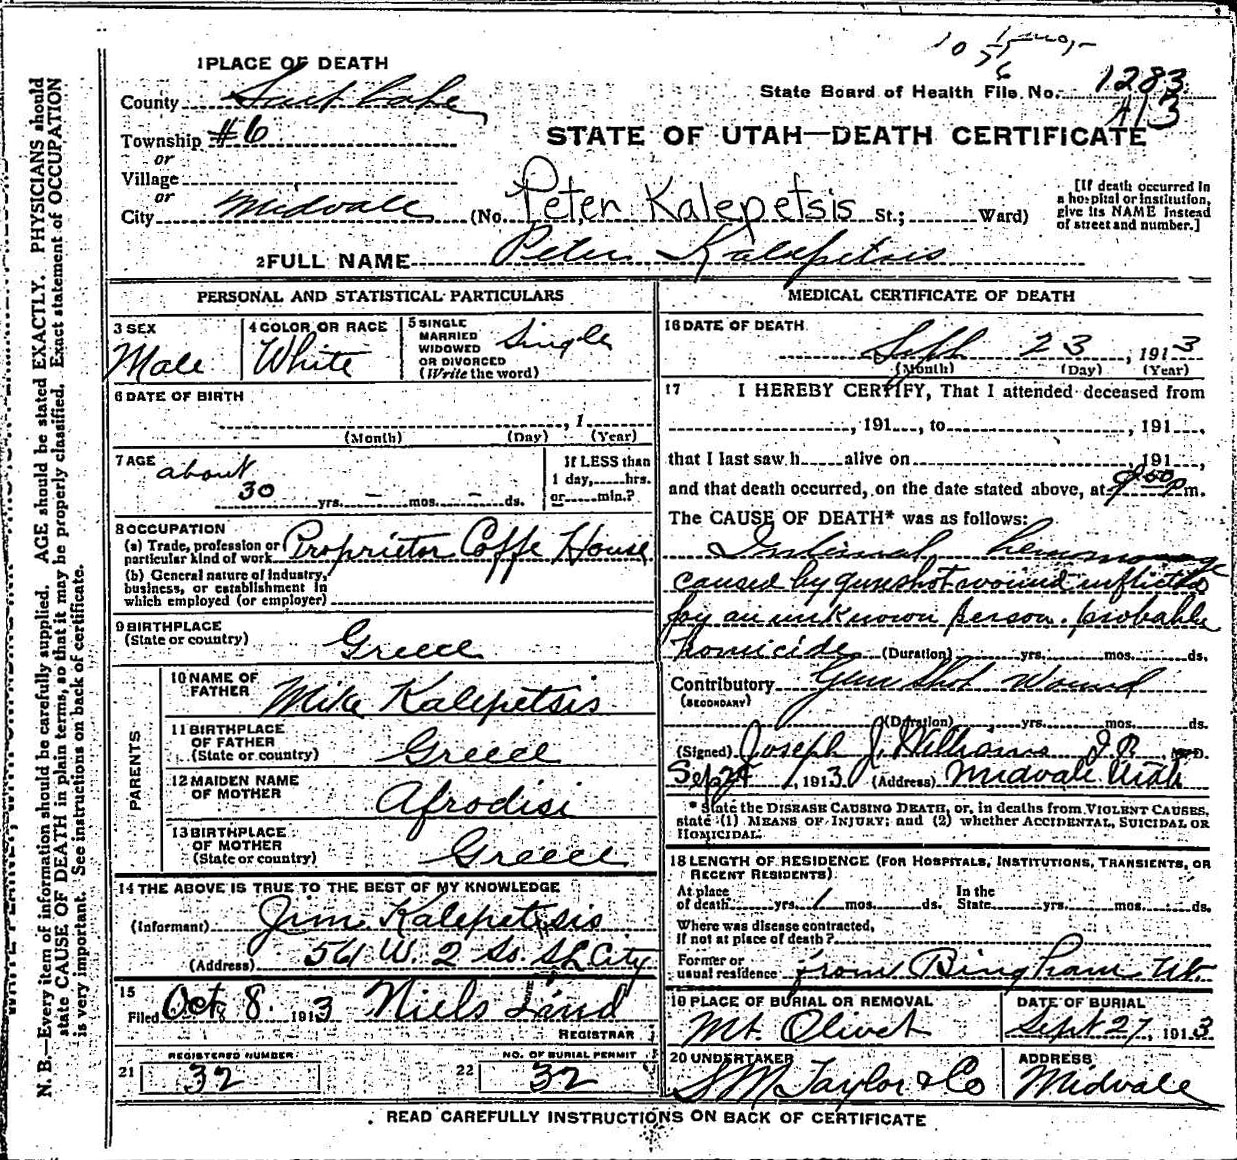 1 PLACE OF DEATH
County Salt Lake
Township #6
or
Village
or
City Midvale (No. Peter Kalepetsis St.; Ward)
State Board of Health File No. 1283
A13
STATE OF UTAH—DEATH CERTIFICATE
[If death occurred in
a hospital or institution,
give its NAME instead
of street and number.]
2 FULL NAME Peter Kalepetsis
PERSONAL AND STATISTICAL PARTICULARS
3 SEX
Male
4 COLOR OR RACE
White
5 SINGLE
MARRIED
WIDOWED
OR DIVORCED
(Write the word)
Single
6 DATE OF BIRTH
, 1
(Month) (Day) (Year)
7 AGE
about
30 yrs. – mos. – ds.
If LESS than
1 day, hrs.
or min.?
8 OCCUPATION
(a) Trade, profession or
particular kind of work Proprietor Coffe House
(b) General nature of industry,
business, or establishment in
which employed (or employer)
9 BIRTHPLACE
(State or country)
Greece
PARENTS
10 NAME OF
FATHER
Mike Kalepetsis
11 BIRTHPLACE
OF FATHER
(State or country)
Greece
12 MAIDEN NAME
OF MOTHER
Afrodisi
13 BIRTHPLACE
OF MOTHER
(State or country)
Greece
14 THE ABOVE IS TRUE TO THE BEST OF MY KNOWLEDGE
(Informant) Jim Kalepetsis
(Address) 561 W. 2 So. SL City
15
Filed Oct 8. 1913 Niels Lind
REGISTRAR
REGISTERED NUMBER
21 32
NO. OF BURIAL PERMIT
22 32
MEDICAL CERTIFICATE OF DEATH
16 DATE OF DEATH
Sept 23, 1913
(Month) (Day) (Year)
17 I HEREBY CERTIFY, That I attended deceased from
, 191 , to , 191 ,
that I last saw h alive on , 191 ,
and that death occurred, on the date stated above, at 9:50 p m.
The CAUSE OF DEATH* was as follows:
Internal hemorrhage
caused by gunshot wound inflicted
by an unknown person. probable
homicide (Duration) yrs. mos. ds.
Contributory Gun Shot Wound
(SECONDARY)
(Duration) yrs. mos. ds.
(Signed) Joseph J. Williams J.P. M.D.
Sep 24, 1913 (Address) Midvale Utah
* State the DISEASE CAUSING DEATH, or, in deaths from VIOLENT CAUSES,
state (1) MEANS OF INJURY; and (2) whether ACCIDENTAL, SUICIDAL OR
HOMICIDAL.
18 LENGTH OF RESIDENCE (FOR HOSPITALS, INSTITUTIONS, TRANSIENTS, OR
RECENT RESIDENTS)
At place
of death yrs. 1 mos. ds.
In the
State yrs. mos. ds.
Where was disease contracted,
if not at place of death?
Former or
usual residence from Bingham Ut.
19 PLACE OF BURIAL OR REMOVAL
Mt. Olivet
DATE OF BURIAL
Sept 27, 1913
20 UNDERTAKER
S M Taylor & Co
ADDRESS
Midvale
READ CAREFULLY INSTRUCTIONS ON BACK OF CERTIFICATE
N. B.—Every item of information should be carefully supplied. AGE should be stated EXACTLY. PHYSICIANS should
state CAUSE OF DEATH in plain terms, so that it may be properly classified. Exact statement of OCCUPATION
is very important. See instructions on back of certificate.